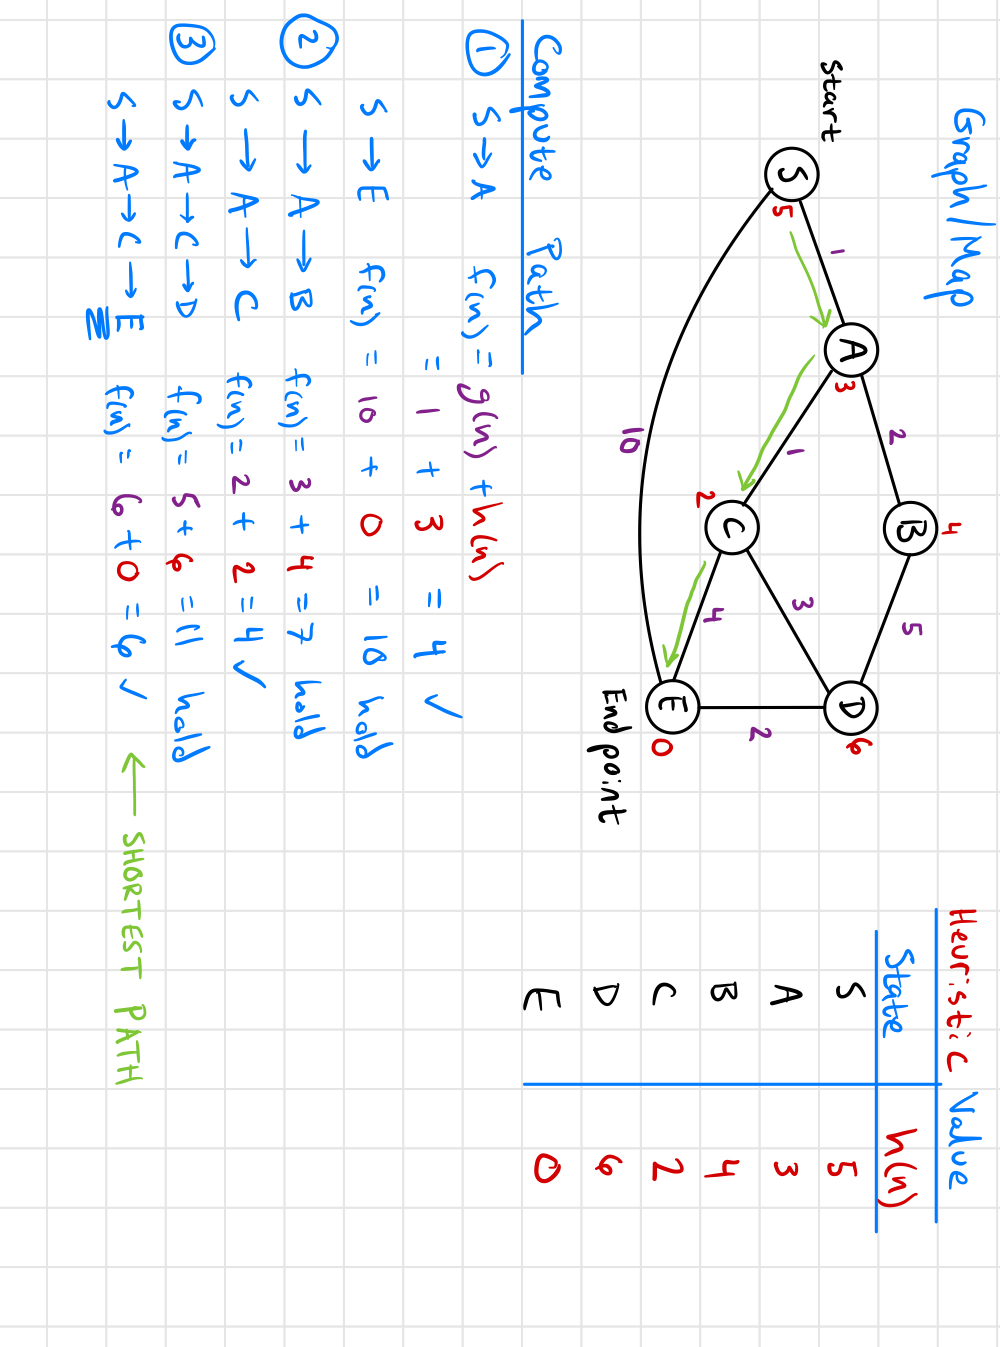 Graph/Map
Start
S
5
1
A
3
2
B
4
1
2
C
10
3
4
5
D
6
E
0
2
End point
Heuristic Value
State h(n)
S 5
A 3
B 4
C 2
D 6
E 0
Compute Path
① S → A f(n) = g(n) + h(n)
= 1 + 3 = 4 ✓
S → E f(n) = 10 + 0 = 10 hold
② S → A → B f(n) = 3 + 4 = 7 hold
S → A → C f(n) = 2 + 2 = 4 ✓
③ S → A → C → D f(n) = 5 + 6 = 11 hold
S → A → C → E f(n) = 6 + 0 = 6 ✓ ← SHORTEST PATH